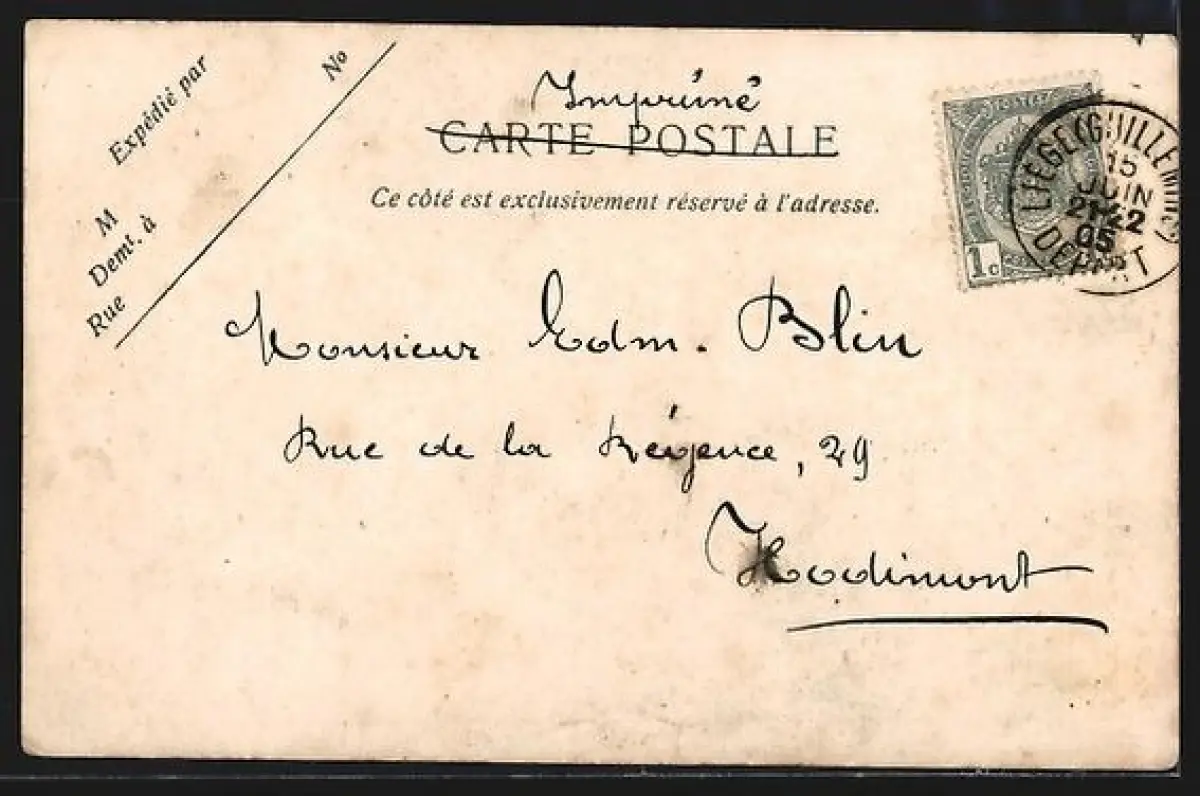 Expédié par
No
M
Demt. à
Rue
Imprimé
CARTE POSTALE
Ce côté est exclusivement réservé à l'adresse.
1c
LIÉGE (GUILLEMINS)
15
JUIN
21-22
05
DEPART
Monsieur Edm. Blin
Rue de la Régence, 29
Hodimont